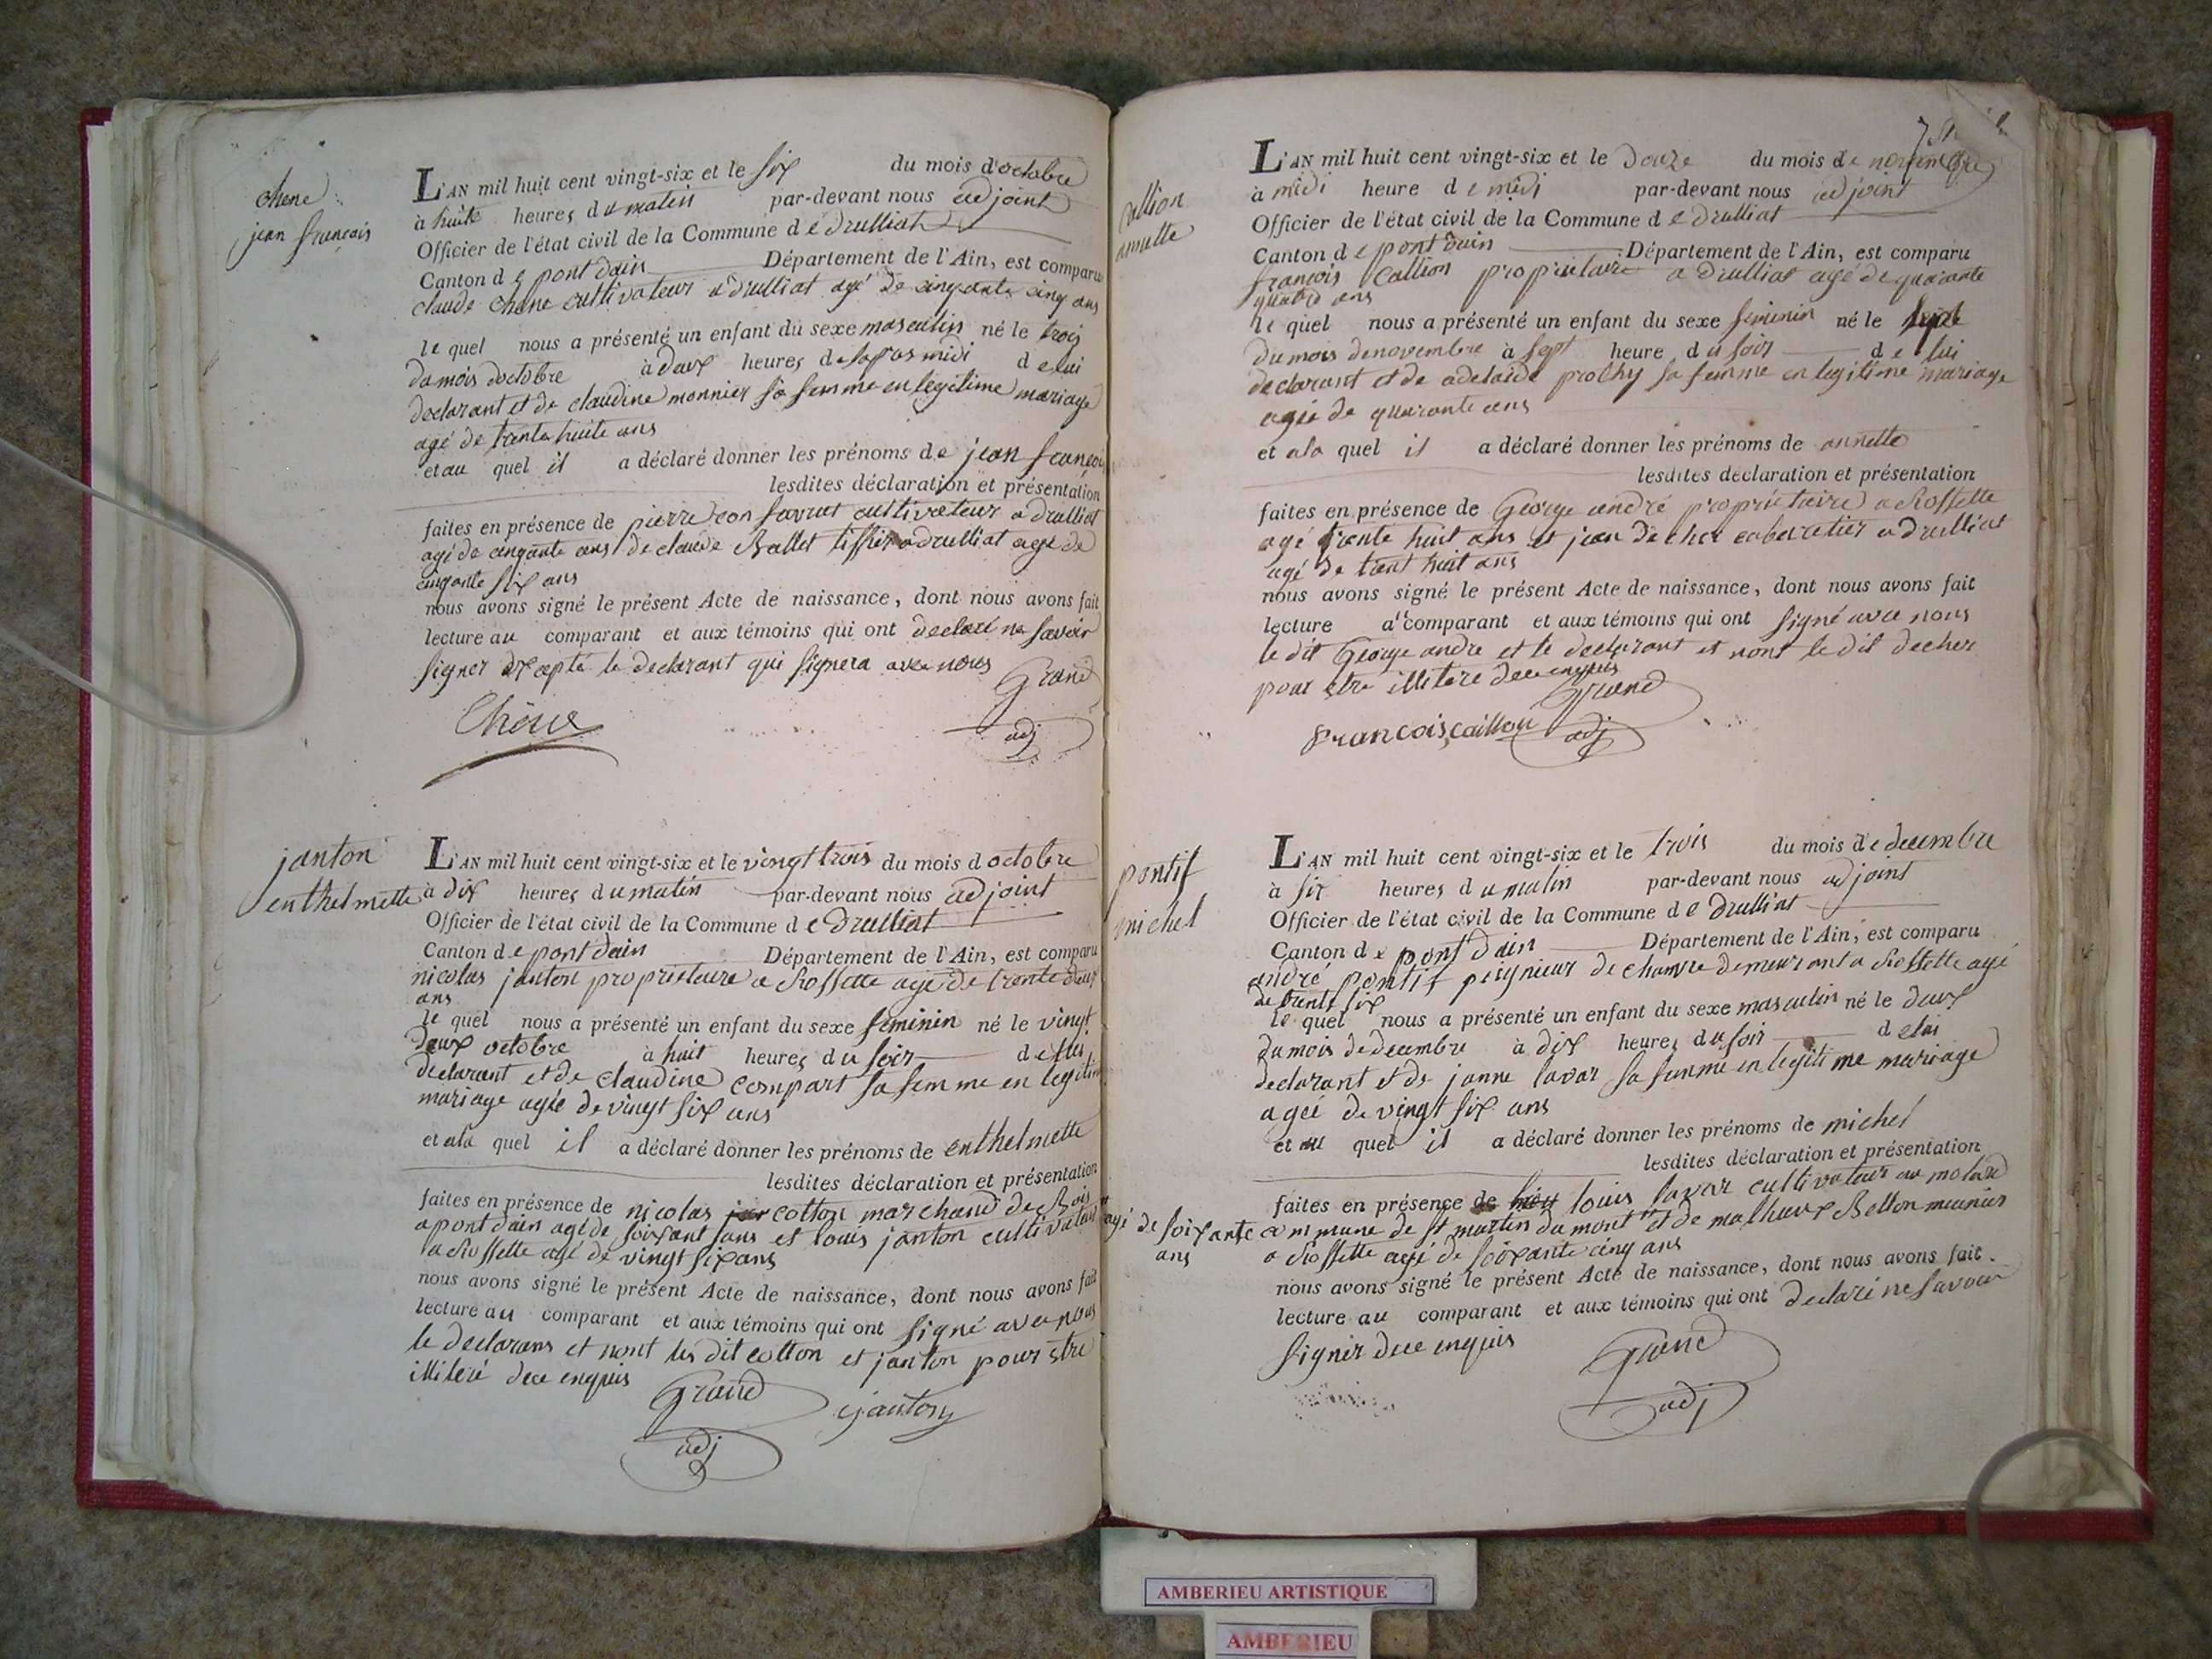 chene
jean françois
L'AN mil huit cent vingt-six et le six du mois d'octobre
à huite heures du matin par-devant nous adjoint
Officier de l'état civil de la Commune de drulliat
Canton de pont dain Département de l'Ain, est comparu
claude chene cultivateur a drulliat agé de cinqante cinq ans
le quel nous a présenté un enfant du sexe masculin né le trois
du mois doctobre à deux heures de lapras midi de lui
declarant et de claudine monnier sa femme en legitime mariage
agé de trante huite ans
et au quel il a déclaré donner les prénoms de jean françois
lesdites déclaration et présentation
faites en présence de pierre cultivateur a drulliat
agé de cinqante ans de claude Ballet tissier a drulliat agé de
cinqante six ans
nous avons signé le présent Acte de naissance, dont nous avons fait
lecture au comparant et aux témoins qui ont declaré ne savoir
signer excepté le declarant qui signera avec nous
Grand
Chêne adj
janton
enthelmette
L'AN mil huit cent vingt-six et le vingt trois du mois d octobre
à dix heures du matin par-devant nous adjoint
Officier de l'état civil de la Commune de drulliat
Canton de pont dain Département de l'Ain, est comparu
nicolas janton proprietaire a Rossette agé de trente deux
ans
le quel nous a présenté un enfant du sexe feminin né le vingt
deux octobre à huit heures du soir de lui
declarant et de claudine compart sa femme en legitime
mariage agée de vingt six ans
et ala quel il a déclaré donner les prénoms de enthelmette
lesdites déclaration et présentation
faites en présence de nicolas cotton marchand de Bois
a pont dain agé de soixant ans et louis janton cultivateur
a Rossette agé de vingt six ans
nous avons signé le présent Acte de naissance, dont nous avons fait
lecture au comparant et aux témoins qui ont signé avec nous
le declarans et nont les dit cotton et janton pour stre
illiteré dece enquis
Grand janton
adj
callion
annette
L'AN mil huit cent vingt-six et le douze du mois de novembre
à midi heure de midi par-devant nous adjoint
Officier de l'état civil de la Commune de drulliat
Canton de pont dain Département de l'Ain, est comparu
françois callion proprietaire a drulliat agé de quarante
quatre ans
le quel nous a présenté un enfant du sexe feminin né le
du mois denovembre à sept heure du soir de lui
declarant et de adelaide prolhy sa femme en legitime mariage
agée de quarante ans
et ala quel il a déclaré donner les prénoms de annette
lesdites déclaration et présentation
faites en présence de George andré proprietaire a Rossette
agé trante huit ans et jean decher cabaretier a drulliat
agé de trant huit ans
nous avons signé le présent Acte de naissance, dont nous avons fait
lecture au comparant et aux témoins qui ont signé avec nous
le dit George andre et le declarant et nont le dit decher
pour stre illitere dece enquis
Grand
francois caillon adj
pontif
michel
L'AN mil huit cent vingt-six et le trois du mois de decembre
à six heures du matin par-devant nous adjoint
Officier de l'état civil de la Commune de drulliat
Canton de pont dain Département de l'Ain, est comparu
andré pontif peignieur de chanvre demeurant a Rossette agé
de trante six
le quel nous a présenté un enfant du sexe masculin né le deux
du mois de decembre à dix heures du soir de lui
declarant et de janne lavar sa femme en legiti me mariage
agée de vingt six ans
et au quel il a déclaré donner les prénoms de michel
lesdites déclaration et présentation
faites en présence de louis lavar cultivateur au molard
agé de soixante commune de st martin du mont et de mathieux Bellon meunier
ans
a Rossette agé de soixante cinq ans
nous avons signé le présent Acte de naissance, dont nous avons fait
lecture au comparant et aux témoins qui ont declaré ne savoir
signer dece enquis
Grand
adj
AMBERIEU ARTISTIQUE
AMBERIEU